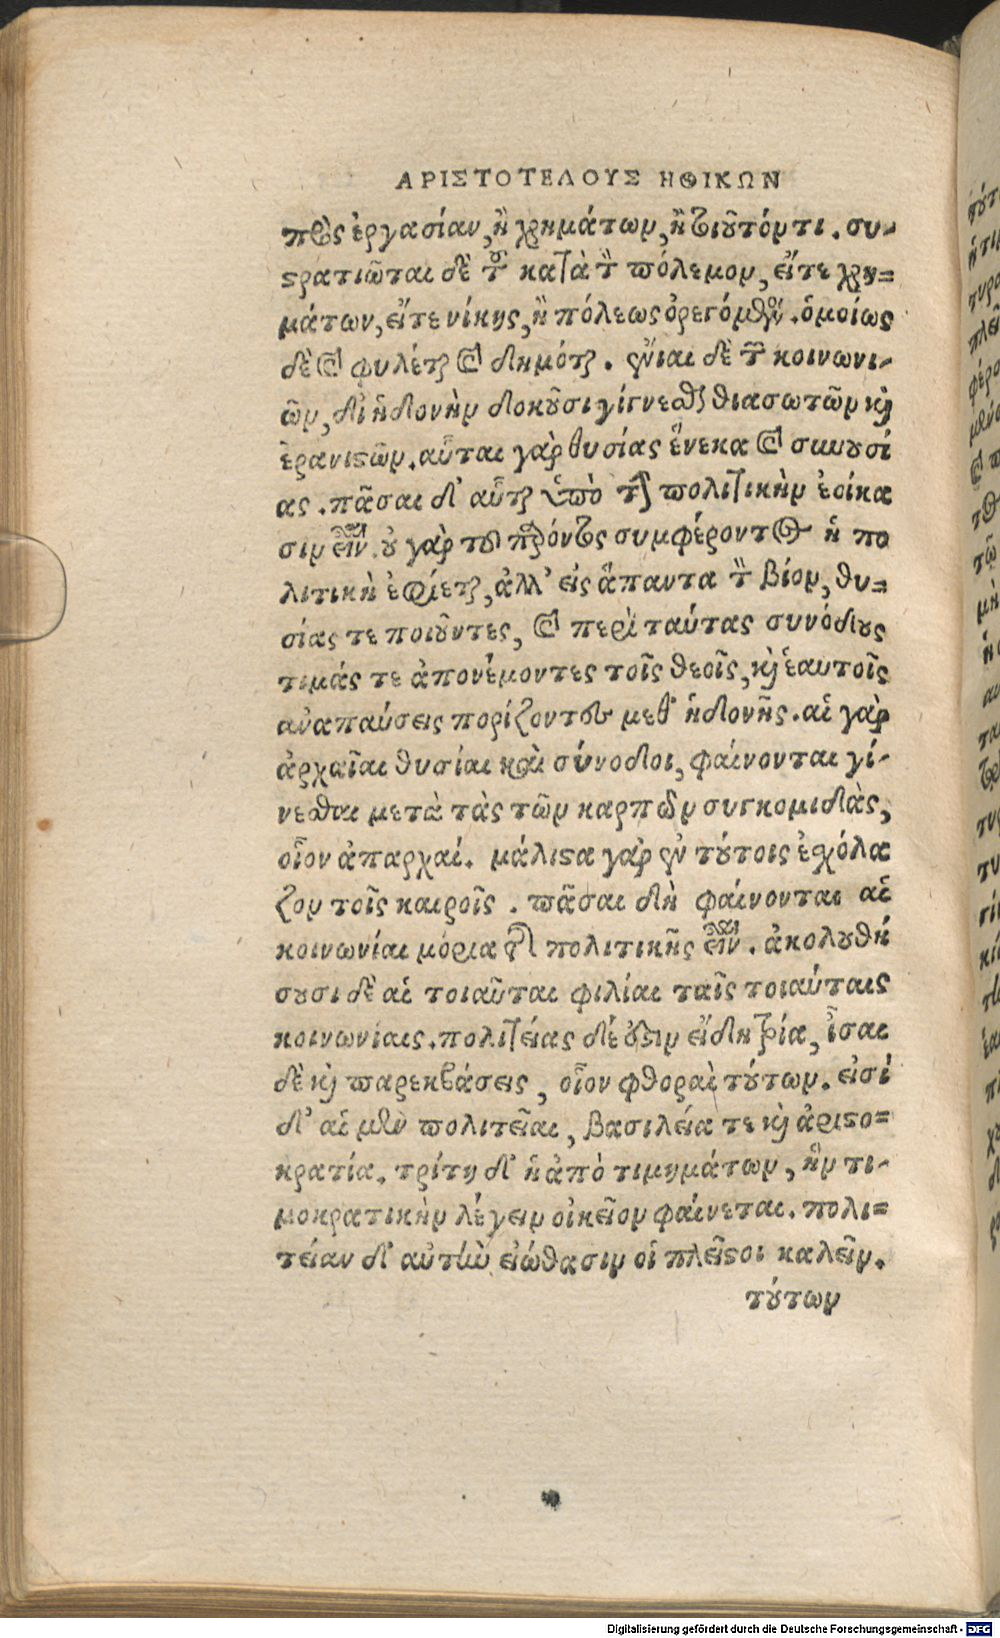 ΑΡΙΣΤΟΤΕΛΟΥΣ ΗΘΙΚΩΝ
πρὸς ἐργασίαν, ἢ χρημάτων, ἢ τιοῦτόν τι. συ-
στρατιῶται δὲ τ̃ κατὰ τ̀ πόλεμον, εἴτε χρη=
μάτων, εἴτε νίκης, ἢ πόλεως ὀρεγόμενοι. ὁμοίως
δὲ καὶ φυλέται καὶ δημόται. ἔνιαι δὲ τῶν κοινωνι-
ῶν, δι' ἡδονὴν δοκοῦσι γίγνεσθαι θιασωτῶν καὶ
ἐρανιστῶν. αὗται γὰρ θυσίας ἕνεκα καὶ συνουσί
ας. πᾶσαι δ' αὗται ὑπὸ τὴν πολιτικὴν ἐοίκα
σιν εἶναι. οὐ γὰρ τοῦ παρόντος συμφέροντος ἡ πο
λιτικὴ ἐφίεται, ἀλλ' εἰς ἅπαντα τὸν βίον, θυ=
σίας τε ποιοῦντες, καὶ περὶ ταύτας συνόδους
τιμάς τε ἀπονέμοντες τοῖς θεοῖς, καὶ ἑαυτοῖς
ἀναπαύσεις πορίζοντες μεθ' ἡδονῆς. αἱ γὰρ
ἀρχαῖαι θυσίαι καὶ σύνοδοι, φαίνονται γί-
νεσθαι μετὰ τὰς τῶν καρπῶν συγκομιδὰς,
οἷον ἀπαρχαί. μάλιστα γὰρ ἐν τούτοις ἐσχόλα
ζον τοῖς καιροῖς. πᾶσαι δὴ φαίνονται αἱ
κοινωνίαι μόρια τῆς πολιτικῆς εἶναι. ἀκολουθή
σουσι δὲ αἱ τοιαῦται φιλίαι ταῖς τοιαύταις
κοινωνίαις. πολιτείας δέ ἐστιν εἴδη τρία, ἴσαι
δὲ καὶ παρεκβάσεις, οἷον φθοραὶ τούτων. εἰσί
δ' αἱ μὲν πολιτεῖαι, βασιλεία τε καὶ ἀριστο-
κρατία. τρίτη δ' ἡ ἀπὸ τιμημάτων, ἣν τι-
μοκρατικὴν λέγειν οἰκεῖον φαίνεται. πολι=
τείαν δ' αὐτὴν εἰώθασιν οἱ πλεῖστοι καλεῖν.
τούτων
Digitalisierung gefördert durch die Deutsche Forschungsgemeinschaft - DFG